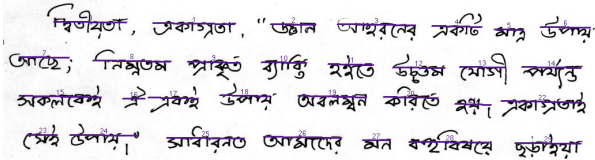 দ্বিতীয়তা, একাগ্রতা, "জ্ঞান আহরনের একটি মাত্র উপায়
আছে; নিম্নতম প্রাকৃত ব্যক্তি হইতে উচ্চতম যোগী পর্যন্ত
সকলকেই ঐ একই উপায় অবলম্বন করিতে হয়। একাগ্রতাই
সেই উপায়।" সাধারনত আমাদের মন বহুবিষয়ে ছড়াইয়া